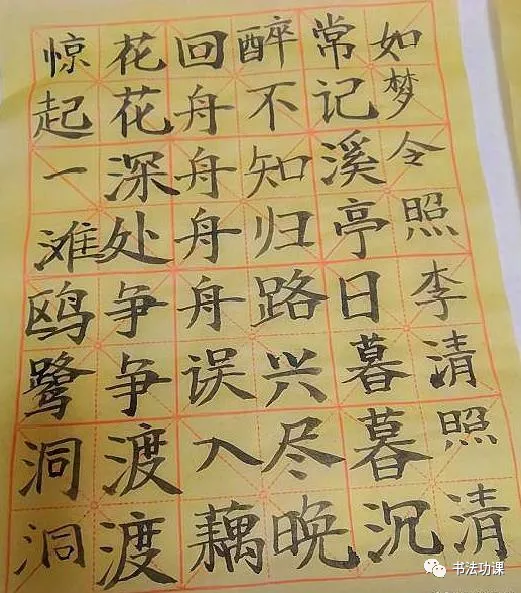 如梦令照李清照清
常记溪亭日暮暮沉
醉不知归路兴尽晚
回舟舟舟舟误入藕
花花深处争争渡渡
惊起一滩鸥鹭洞洞
书法功课